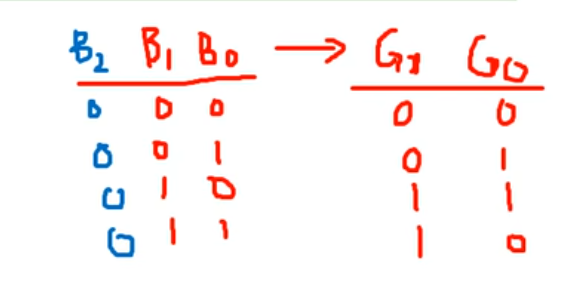 B2 B1 B0 → G1 G0
0 0 0 0 0
0 0 1 0 1
0 1 0 1 1
0 1 1 1 0